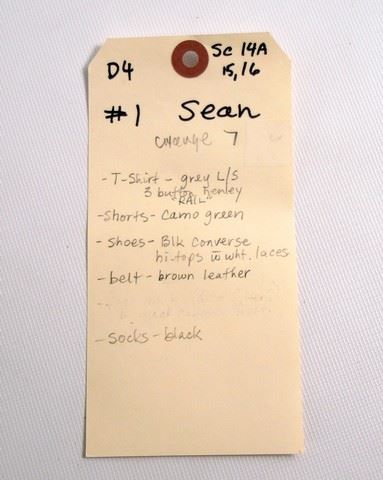 D4
Sc 14A
15, 16
#1 Sean
change 7
- T-Shirt - grey L/S
3 button henley
"RAIL"
- Shorts - Camo green
- Shoes - Blk Converse
hi-tops w wht. laces
- belt - brown leather
- socks - black